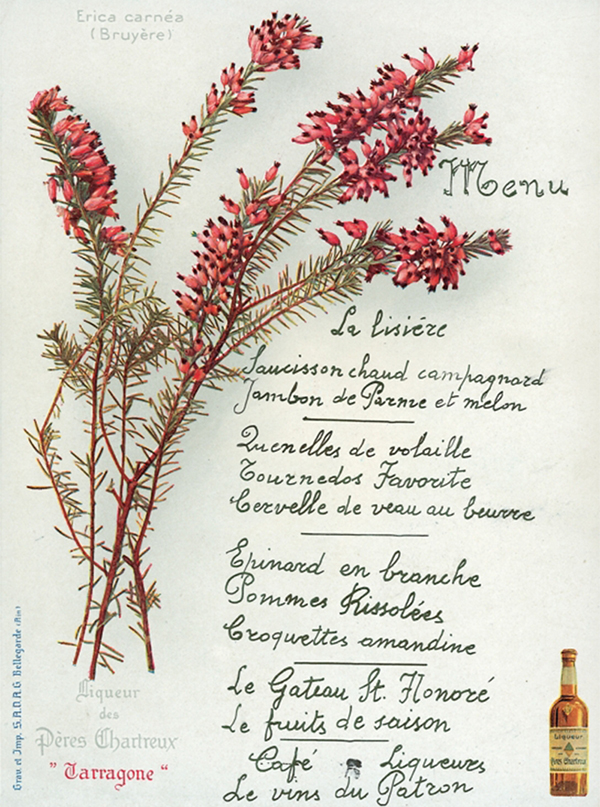 Erica carnéa
(Bruyère)
Menu
La lisiére
Saucisson chaud campagnard
Jambon de Parme et melon
Quenelles de volaille
Tournedos Favorite
Cervelle de veau au beurre
Epinard en branche
Pommes Rissolées
Croquettes amandine
Le Gateau St. Honoré
Le fruits de saison
Café Liqueurs
Le vins du Patron
Liqueur
des
Pères Chartreux
"Tarragone"
Grav. et Imp. S.A.D.A.G. Bellegarde (Ain)
Liqueur
Pères Chartreux